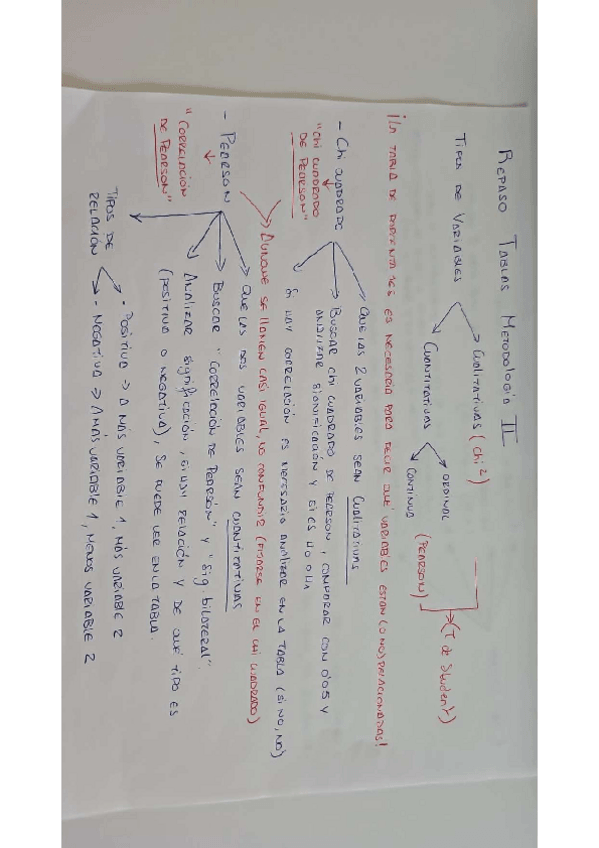 REPASO TABLAS METODOLOGÍA II
TIPOS DE VARIABLES
CUALITATIVAS (Chi²)
CUANTITATIVAS
ORDINAL
CONTÍNUA
(PEARSON)
(T de Student)
¡LA TABLA DE ES NECESARIA PARA DECIR QUÉ VARIABLES ESTÁN (O NO) RELACIONADAS!
- Chi CUADRADO
"Chi CUADRADO
DE PEARSON"
QUE LAS 2 VARIABLES SEAN CUALITATIVAS
BUSCAR CHI CUADRADO DE PEARSON, COMPARAR CON 0'05 Y
ANALIZAR SIGNIFICACIÓN Y SI ES H0 O H1
SI HAY CORRELACIÓN ES NECESARIO ANALIZAR EN LA TABLA (SI NO, NO)
AUNQUE SE LLAMEN CASI IGUAL, NO CONFUNDIR (FIJARSE EN EL CHI CUADRADO)
- PEARSON
"CORRELACIÓN
DE PEARSON"
QUE LAS DOS VARIABLES SEAN CUANTITATIVAS
BUSCAR "CORRELACIÓN DE PEARSON" Y "SIG. BILATERAL".
ANALIZAR SIGNIFICACIÓN, SI HAY RELACIÓN Y DE QUÉ TIPO ES
(POSITIVA O NEGATIVA), SE PUEDE VER EN LA TABLA.
TIPOS DE
RELACIÓN
- POSITIVA → A MÁS VARIABLE 1, MÁS VARIABLE 2
- NEGATIVA → A MÁS VARIABLE 1, MENOS VARIABLE 2